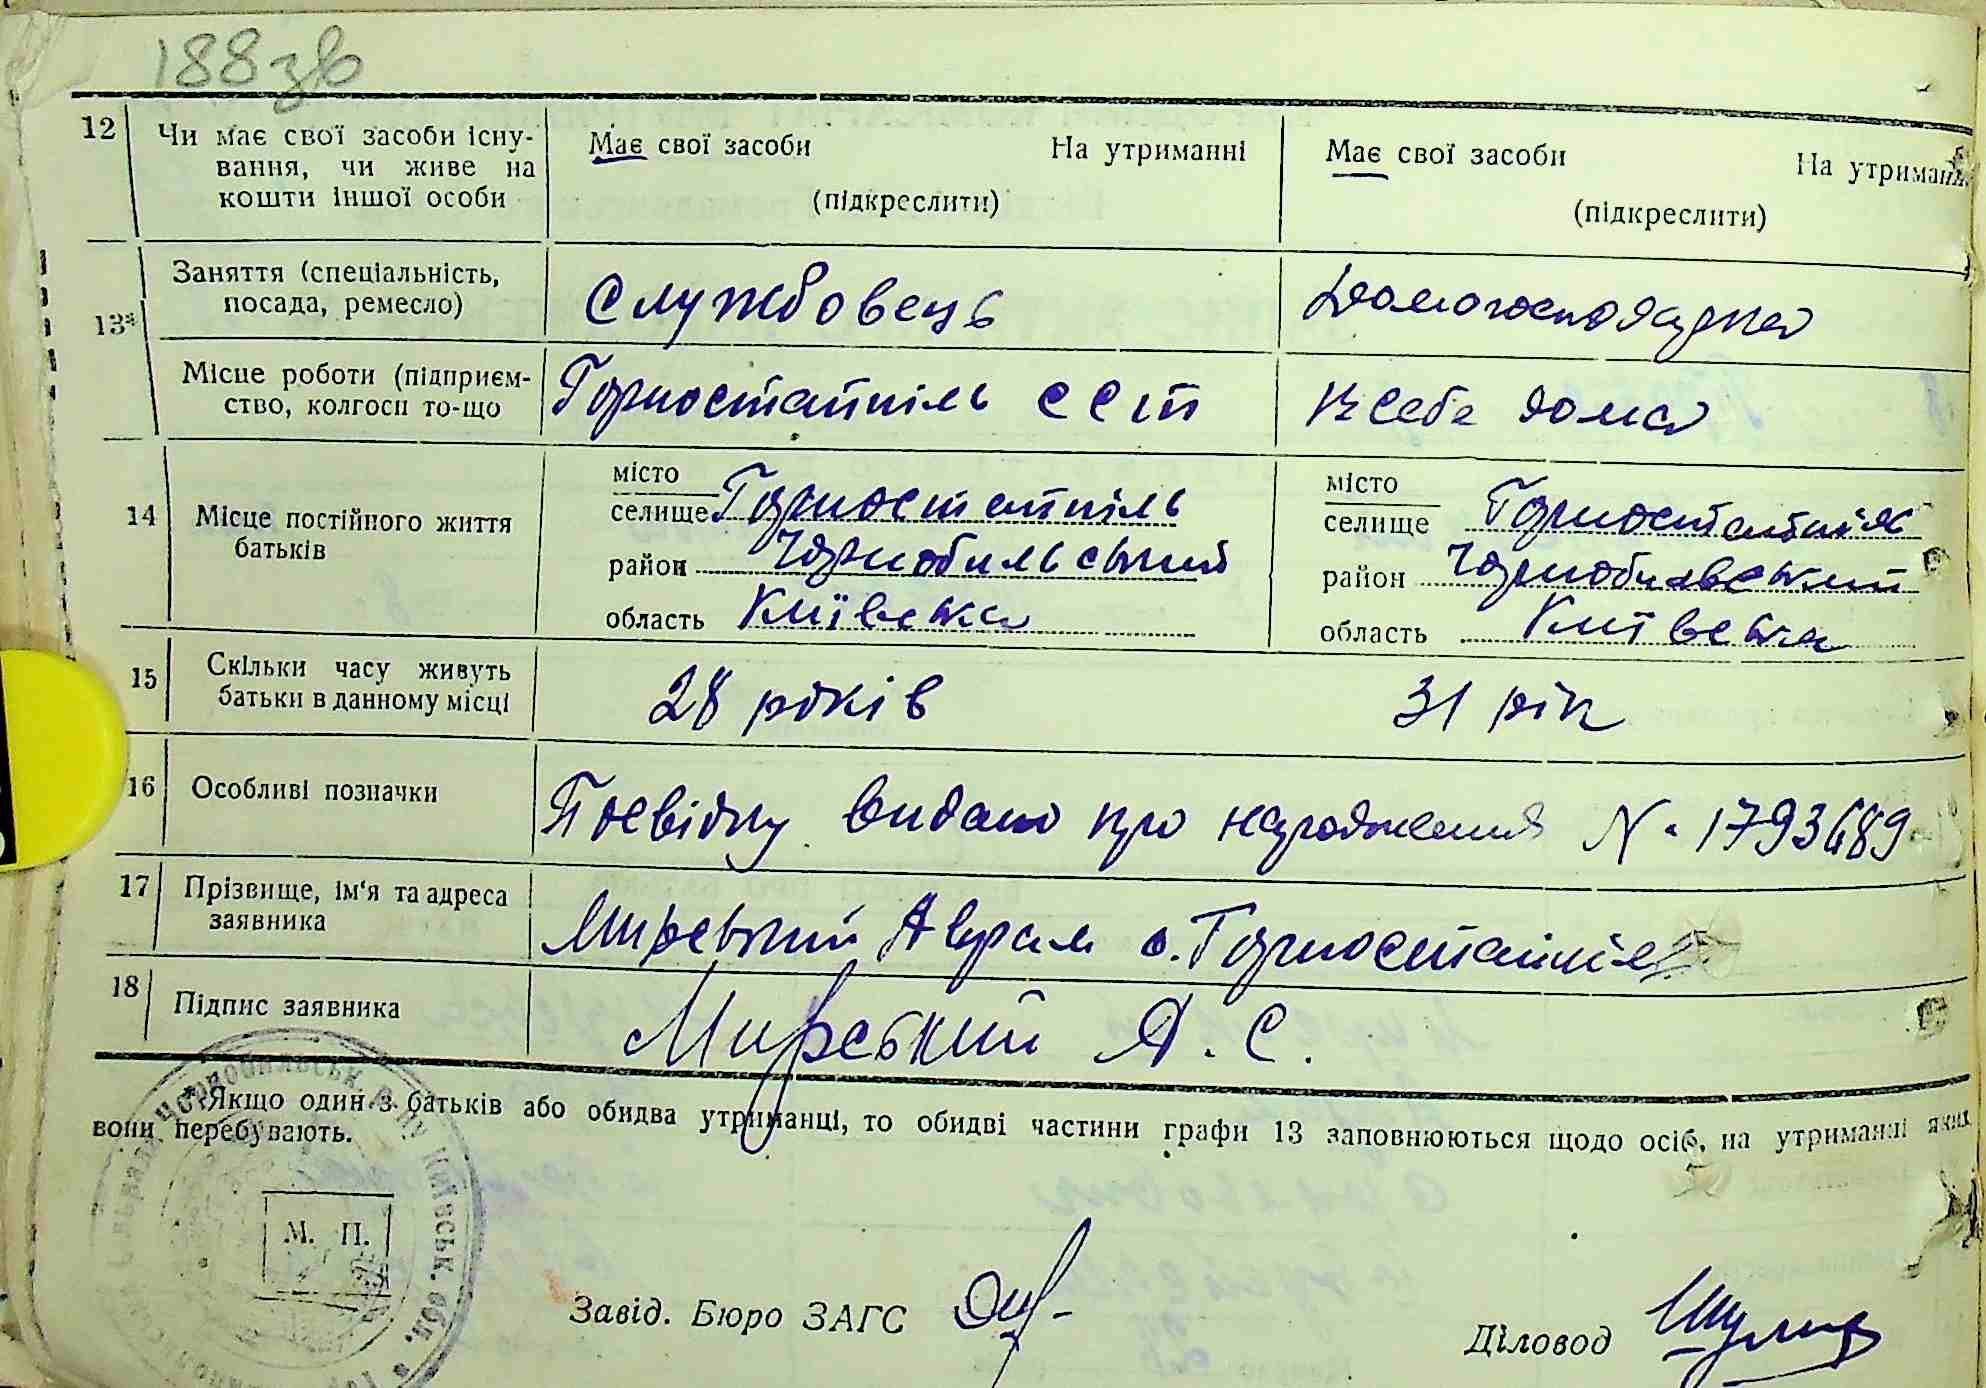 188зв
12 Чи має свої засоби існу-
вання, чи живе на
кошти іншої особи
Має свої засоби На утриманні
(підкреслити)
Має свої засоби На утриманні
(підкреслити)
13* Заняття (спеціальність,
посада, ремесло)
Службовець
Домогосподарка
Місце роботи (підприєм-
ство, колгосп то-що
Горностайпіль ССТ
в себе дома
14 Місце постійного життя
батьків
місто
селище Горностайпіль
район Чорнобильський
область Київська
місто
селище Горностайпіль
район Чорнобильський
область Київська
15 Скільки часу живуть
батьки в данному місці
28 років
31 рік
16 Особливі позначки
Посвідку видано про народження N. 1793689
17 Прізвище, ім'я та адреса
заявника
Мирський Аврам с. Горностайпіль
18 Підпис заявника
Мирський А. С.
*) Якщо один з батьків або обидва утриманці, то обидві частини графи 13 заповнюються щодо осіб, на утриманні яких
вони перебувають.
М. П.
Чорнобильськ. р-ну Київськ. обл.
Завід. Бюро ЗАГС
Діловод